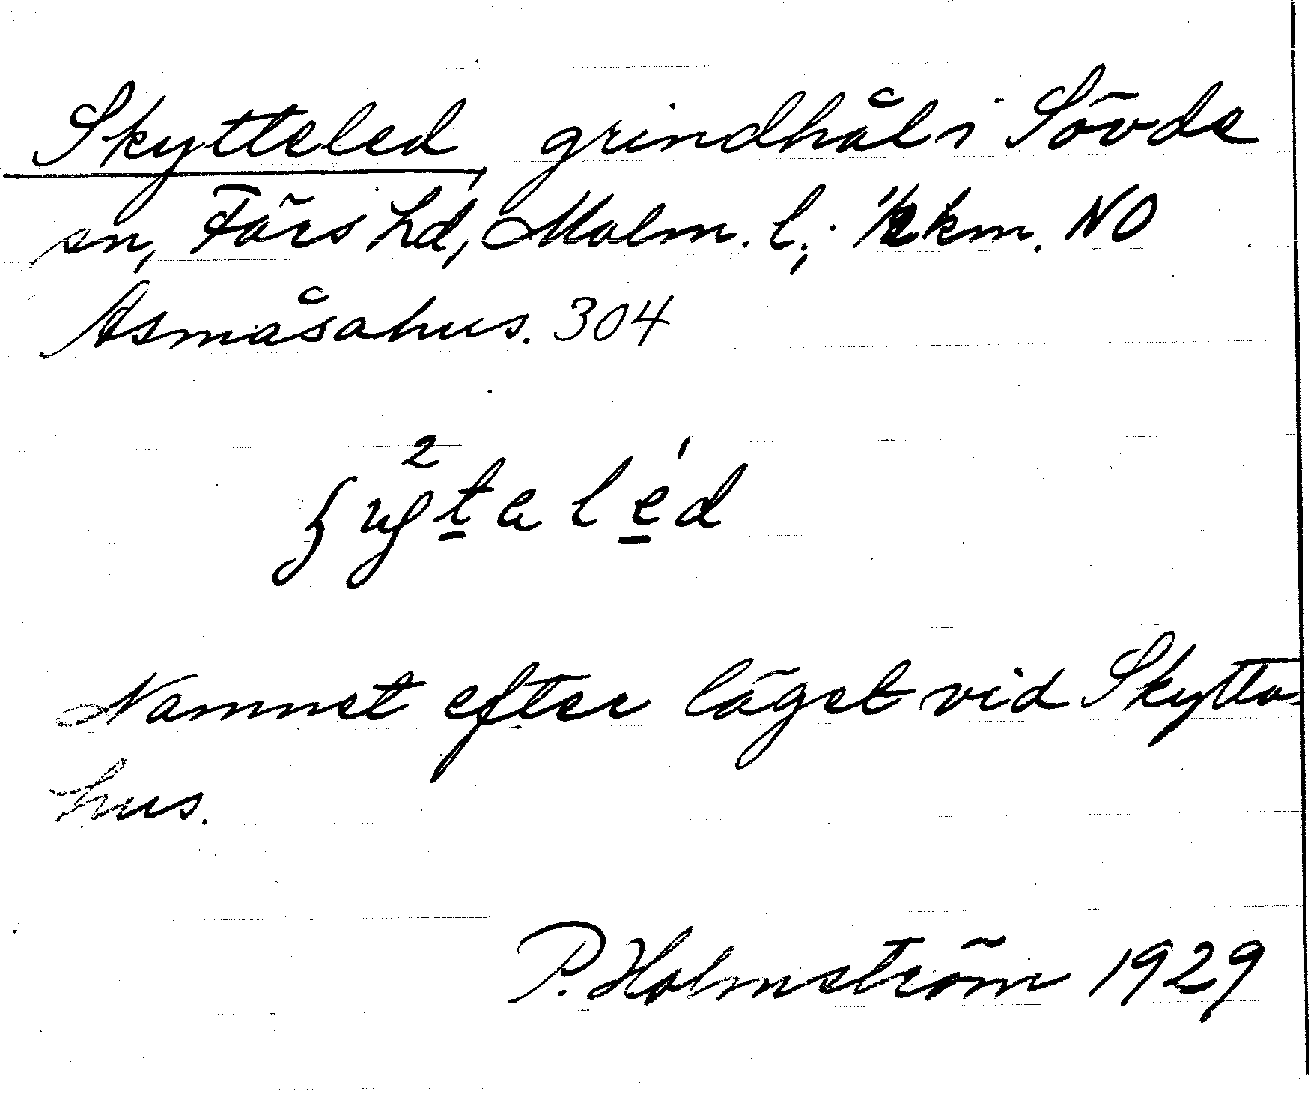 Skytteled, grindhål i Sövde
sn, Färs hd, Malm. l.; ½ km. NO
Asmåsahus. 304
Namnet efter läget vid Skytta-
hus.
P. Holmström 1929